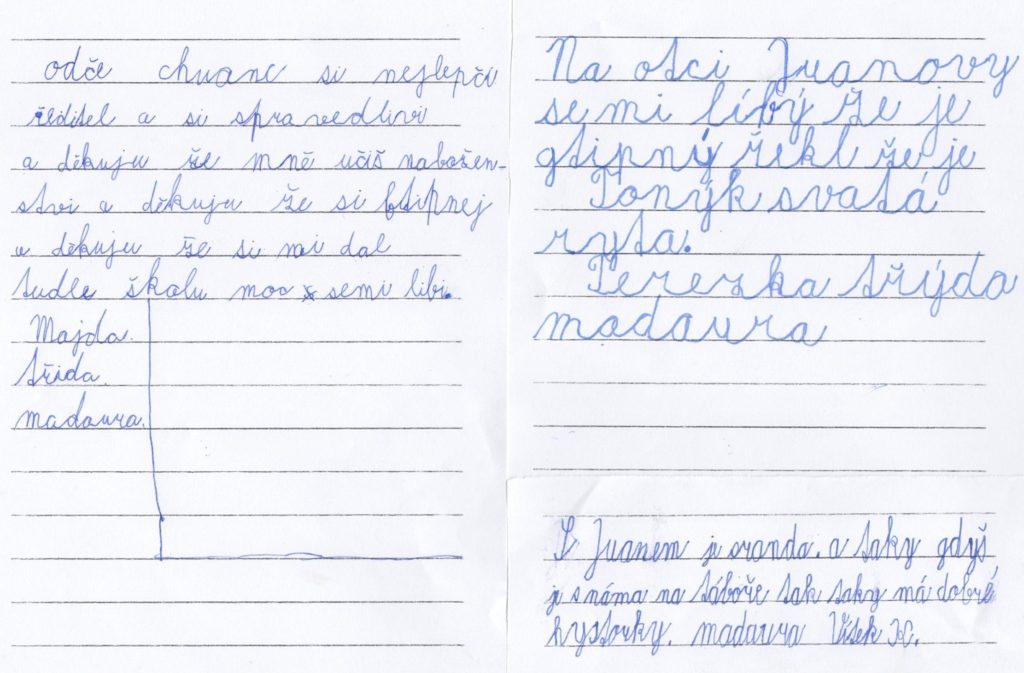 odče chuanc si nejlepči
řiditel a si spravedlivi
a děkuju še mně učiš nabošen-
stvi a děkuju že si btipnej
a děkuju že si mi dal
tudle školu moc semi libi.
Majda.
třida.
madaura.
Na otci Juanovy
se mi líbý že je
gtipný řekl že je
Tonýk svatá
ryta.
Terezka třýda
madaura
S Juanem je sranda. a taky gdyš
je snáma na táboře tak taky má dobré
hystorky. madaura Vítek K.